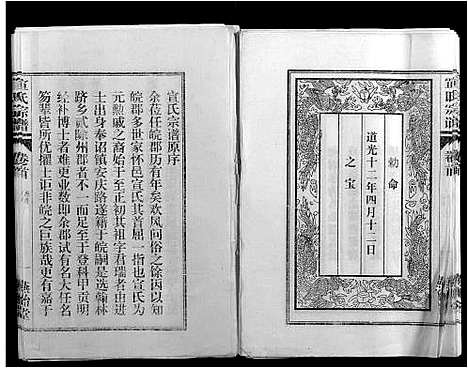 宣氏宗譜
卷首
勅命
道光十二年四月十三日
之宝
宣氏宗譜原序
余莅任皖郡历年矣欢风问俗之馀因以知
皖郡望族甲于怀邑宣氏其首屈一指也宣氏
元勲戚之裔始于至正初其祖字君瑞者由进
士出身奉诏镇安庆路遂籍于皖嗣是选翰林
跻乡贰隷州郡者不一而足至于登科甲贡明
经补博士者难更仆数即余郡试有名大任名
笏辈皆所优擢士讵非皖之巨族哉更有嘉于
宣氏宗譜
卷首